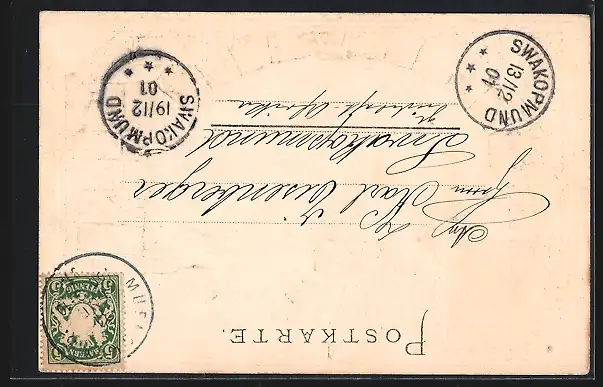 POSTKARTE.
BAYERN
5 5
PFENNIG
An
Herrn Karl Eisenberger
Swakopmund
Südwest Afrika
SWAKOPMUND
19/12
01
* * *
SWAKOPMUND
13/12
01
* * *